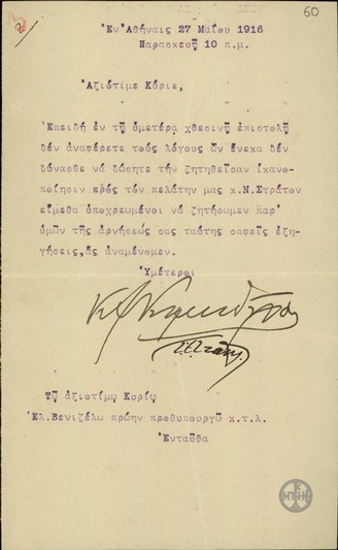 60
Ἐν Ἀθήναις 27 Μαΐου 1916
Παρασκευῇ 10 π.μ.
Ἀξιότιμε Κύριε,
Ἐπειδή ἐν τῇ ὑμετέρᾳ χθεσινῇ ἐπιστολῇ
δέν ἀναφέρετε τούς λόγους ὧν ἕνεκα δέν
δύνασθε νά δώσητε τήν ζητηθεῖσαν ἱκανο-
ποίησιν πρός τόν πελάτην μας κ.Ν.Στράτον
εἴμεθα ὑποχρεωμένοι νά ζητήσωμεν παρ'
ὑμῶν τῆς ἀρνήσεώς σας ταύτης σαφεῖς ἐξη-
γήσεις, ἅς ἀναμένομεν.
Ὑμέτεροι
Τῷ ἀξιοτίμῳ Κυρίῳ
Ἐλ.Βενιζέλῳ πρώην πρωθυπουργῷ κ.τ.λ.
Ἐνταῦθα